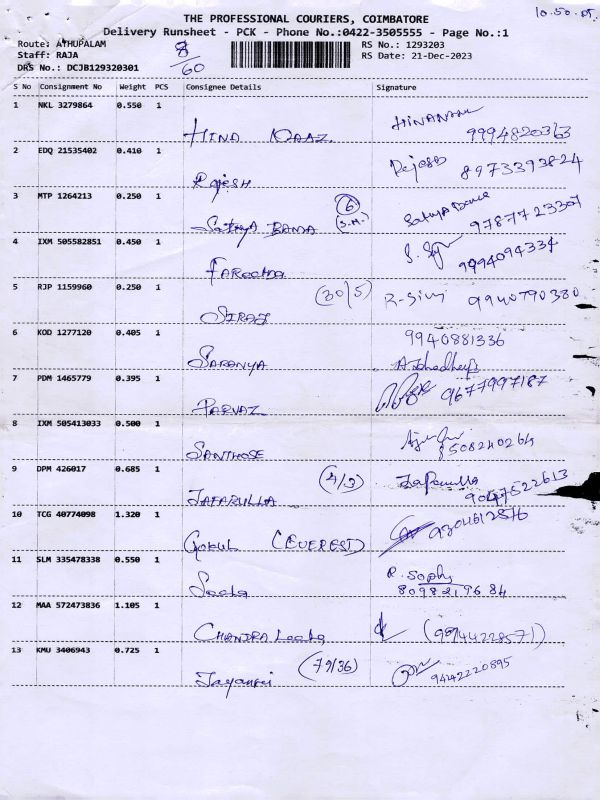 10.50.05.
THE PROFESSIONAL COURIERS, COIMBATORE
Delivery Runsheet - PCK - Phone No.:0422-3505555 - Page No.:1
Route: ATHUPALAM RS No.: 1293203
Staff: RAJA 8/60 RS Date: 21-Dec-2023
DRS No.: DCJB129320301
S No Consignment No Weight PCS Consignee Details Signature
1 NKL 3279864 0.550 1
HINA NAAZ 9994820363
2 EDQ 21535402 0.410 1 8973393824
Rajesh
3 MTP 1264213 0.250 1 6 Sathya Bama
Sathya BAMA (S.M.) 9787723307
4 IXM 505582851 0.450 1 9994094334
FAReetha
5 RJP 1159960 0.250 1 (30/5) R-Siraj 9940790380
SIRAJ
6 KOD 1277120 0.405 1 9940881336
SARANYA
7 PDM 1465779 0.395 1 9677997187
PARVAZ
8 IXM 505413033 0.500 1
SANTHOSE 8508240264
9 DPM 426017 0.685 1 (4/9) Jafarulla
JAFARULLA 9047522613
10 TCG 40774098 1.320 1
Gokul (EUEREST)
11 SLM 335478338 0.550 1 R. Sophy
8098219684
12 MAA 572473836 1.105 1
CHANDRA Leeha (9944228571)
13 KMU 3406943 0.725 1 (79/36)
Jayanthi 9442220895